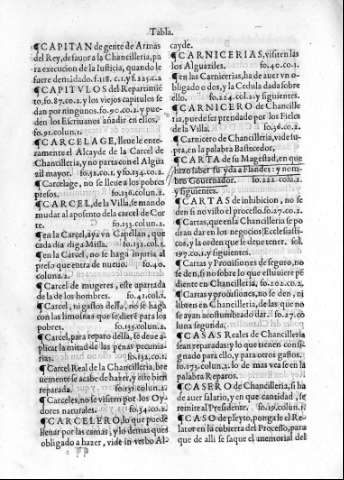 Tabla.
¶CAPITAN de gente de Armas
del Rey, de fauor a la Chancilleria, pa
ra execucion de la Iusticia, quando le
fuere demãdado. f.118. c.1. y f.225.c.2
¶CAPITVLOS del Repartimiẽ
to, fo.87.co.2. y los viejos capitulos se
dan por ningunos. fo.90.co.2. y pue-
den los Escriuanos añadir en ellos,
fo.91.colun.1.
¶CARCELAGE, lleue le ente-
ramente el Alcayde de la Carcel de
Chancilleria, y no parta con el Algũa
zil mayor. fo.51.co.1. y fo.154.co.2.
¶Carcelage, no se lleue a los pobres
presos. fo.155.colun.2.
¶CARCEL, de la Villa, se mando
mudar al aposento dela carcel de Cor
te. fo.153.colun.2.
¶En la Carcel, aya vn Capellan, que
cada dia diga Missa. fo.153.col.2.
¶En la Carcel, no se haga injuria al
preso que entra de nueuo. fo.40.
colun.2.
¶Carcel de mugeres, este apartada
de la de los hombres. fo.41.col.1.
¶Carcel, ni gastos della, no se haga
con las limosnas que se dieré para los
pobres. fo.155.colun.2.
¶Carcel, para reparo della, se deue a-
plicar la mitad de las penas pecunia-
rias. fo.152.co.1.
¶Carcel Real de la Chancilleria, bre
uemente se acabe de hazer, y este bien
reparada. fo.151.colun.2.
¶Carceles, no se visiten por los Oy-
dores naturales. fo.154.co.2.
¶CARCELERO, lo que puede
lleuar por las camas; y lo demas que es
obligado a hazer, vide in verbo Al-
cayde.
¶CARNICERIAS, visiten las
los Alguaziles. fo.40.co.1.
¶en las Carnicerias, ha de auer vn o-
bligado o dos, y la Cedula dada sobre
ello. fo.224.col.2. y siguientes.
¶CARNICERO de Chancille
ria, puede ser prendado por los Fieles
de la Villa. fo.36.co.2.
¶Carnicero de Chancilleria, vide su-
pra, en la palabra Bastecedor.
¶CARTA de su Magestad, en que
hizo saber su yda a Flandes: y nom-
bro Gouernador. fo.222.colu.2.
y siguientes.
¶CARTAS de inhibicion, no se
den si no visto el processo. fo.27.co.2.
¶Cartas, que en la Chancilleria se po
dran dar en los negocios Ecclesiasti-
cos, y la orden que se deue tener. fol.
197.co.1. y siguientes.
¶Cartas y Prouisiones de seguro, no
se den, si no sobre lo que estuuiere pẽ
diente en Chancilleria. fo.202.co.2.
¶Cartas y prouisiones, no se den, ni
libren en Chancilleria, de las que no
se ayan acostumbrado dar. fo.27.co
luna segunda.
¶CASAS Reales de Chancilleria
sean reparadas: y lo que tienen consi-
gnado para ello, y para otros gastos.
fo.175.colun.2. lo de mas vea en la
palabra Reparos.
¶CASERO de Chancilleria, si ha
de auer salario, y en que cantidad, se
remite al Presidente. fo.19.colun.1.
¶CASO de pleyto, ponga le el Re-
lator en la cubierta del Processo, para
que de alli se saque el memorial del